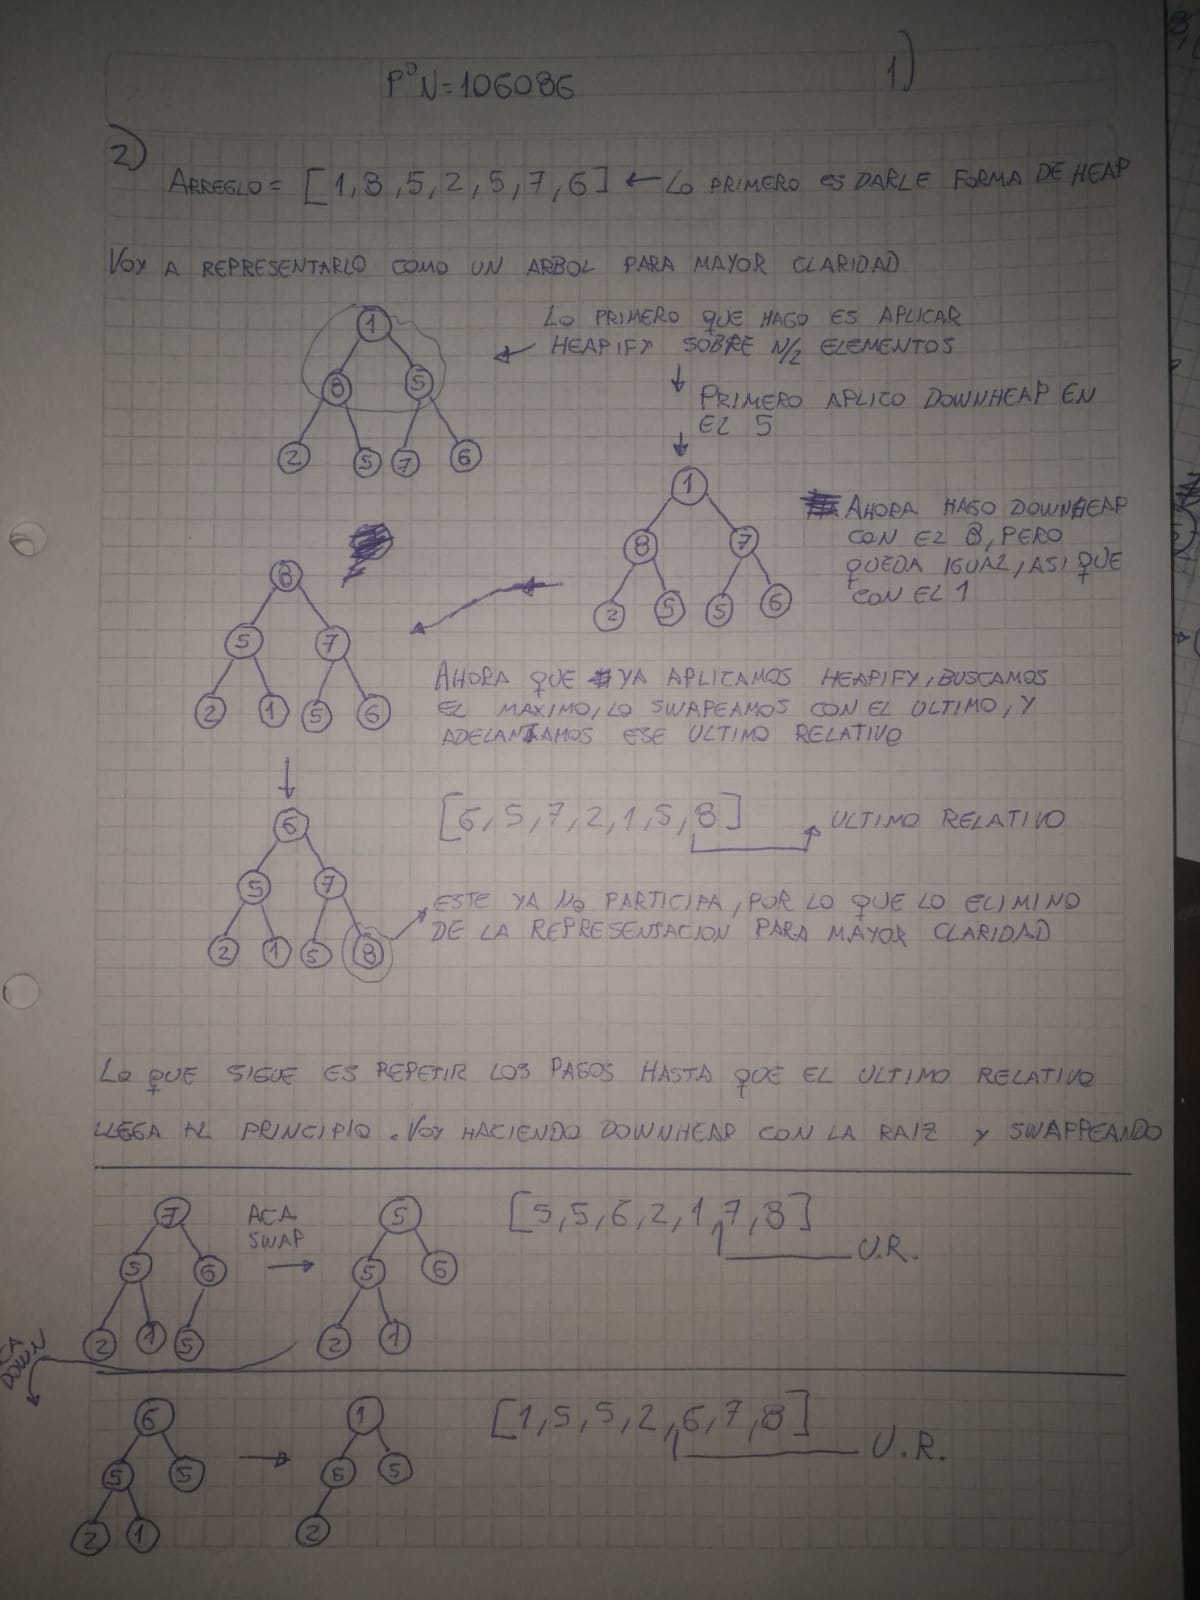 P°N=106086
1)
2)
ARREGLO = [1,8,5,2,5,7,6] ← LO PRIMERO ES DARLE FORMA DE HEAP
VOY A REPRESENTARLO COMO UN ARBOL PARA MAYOR CLARIDAD
1
8 5
2 5 7 6
LO PRIMERO QUE HAGO ES APLICAR
← HEAPIFY SOBRE N/2 ELEMENTOS
↓ PRIMERO APLICO DOWNHEAP EN
EL 5
↓
1
8 7
2 5 5 6
AHORA HAGO DOWNHEAP
CON EL 8, PERO
QUEDA IGUAL, ASI QUE
CON EL 1
8
5 7
2 1 5 6
AHORA QUE YA APLICAMOS HEAPIFY, BUSCAMOS
EL MAXIMO, LO SWAPEAMOS CON EL ULTIMO, Y
ADELANTAMOS ESE ULTIMO RELATIVO
↓
6
5 7
2 1 5 8
[6,5,7,2,1,5,8] ULTIMO RELATIVO
ESTE YA NO PARTICIPA, POR LO QUE LO ELIMINO
DE LA REPRESENTACION PARA MAYOR CLARIDAD
LO QUE SIGUE ES REPETIR LOS PASOS HASTA QUE EL ULTIMO RELATIVO
LLEGA AL PRINCIPIO. VOY HACIENDO DOWNHEAP CON LA RAIZ Y SWAPPEANDO
7
5 6
2 1 5
ACA
SWAP
→
5
5 6
2 1
[5,5,6,2,1,7,8]
U.R.
ACA
DOWN
6
5 5
2 1
→
1
5 5
2
[1,5,5,2,6,7,8]
U.R.